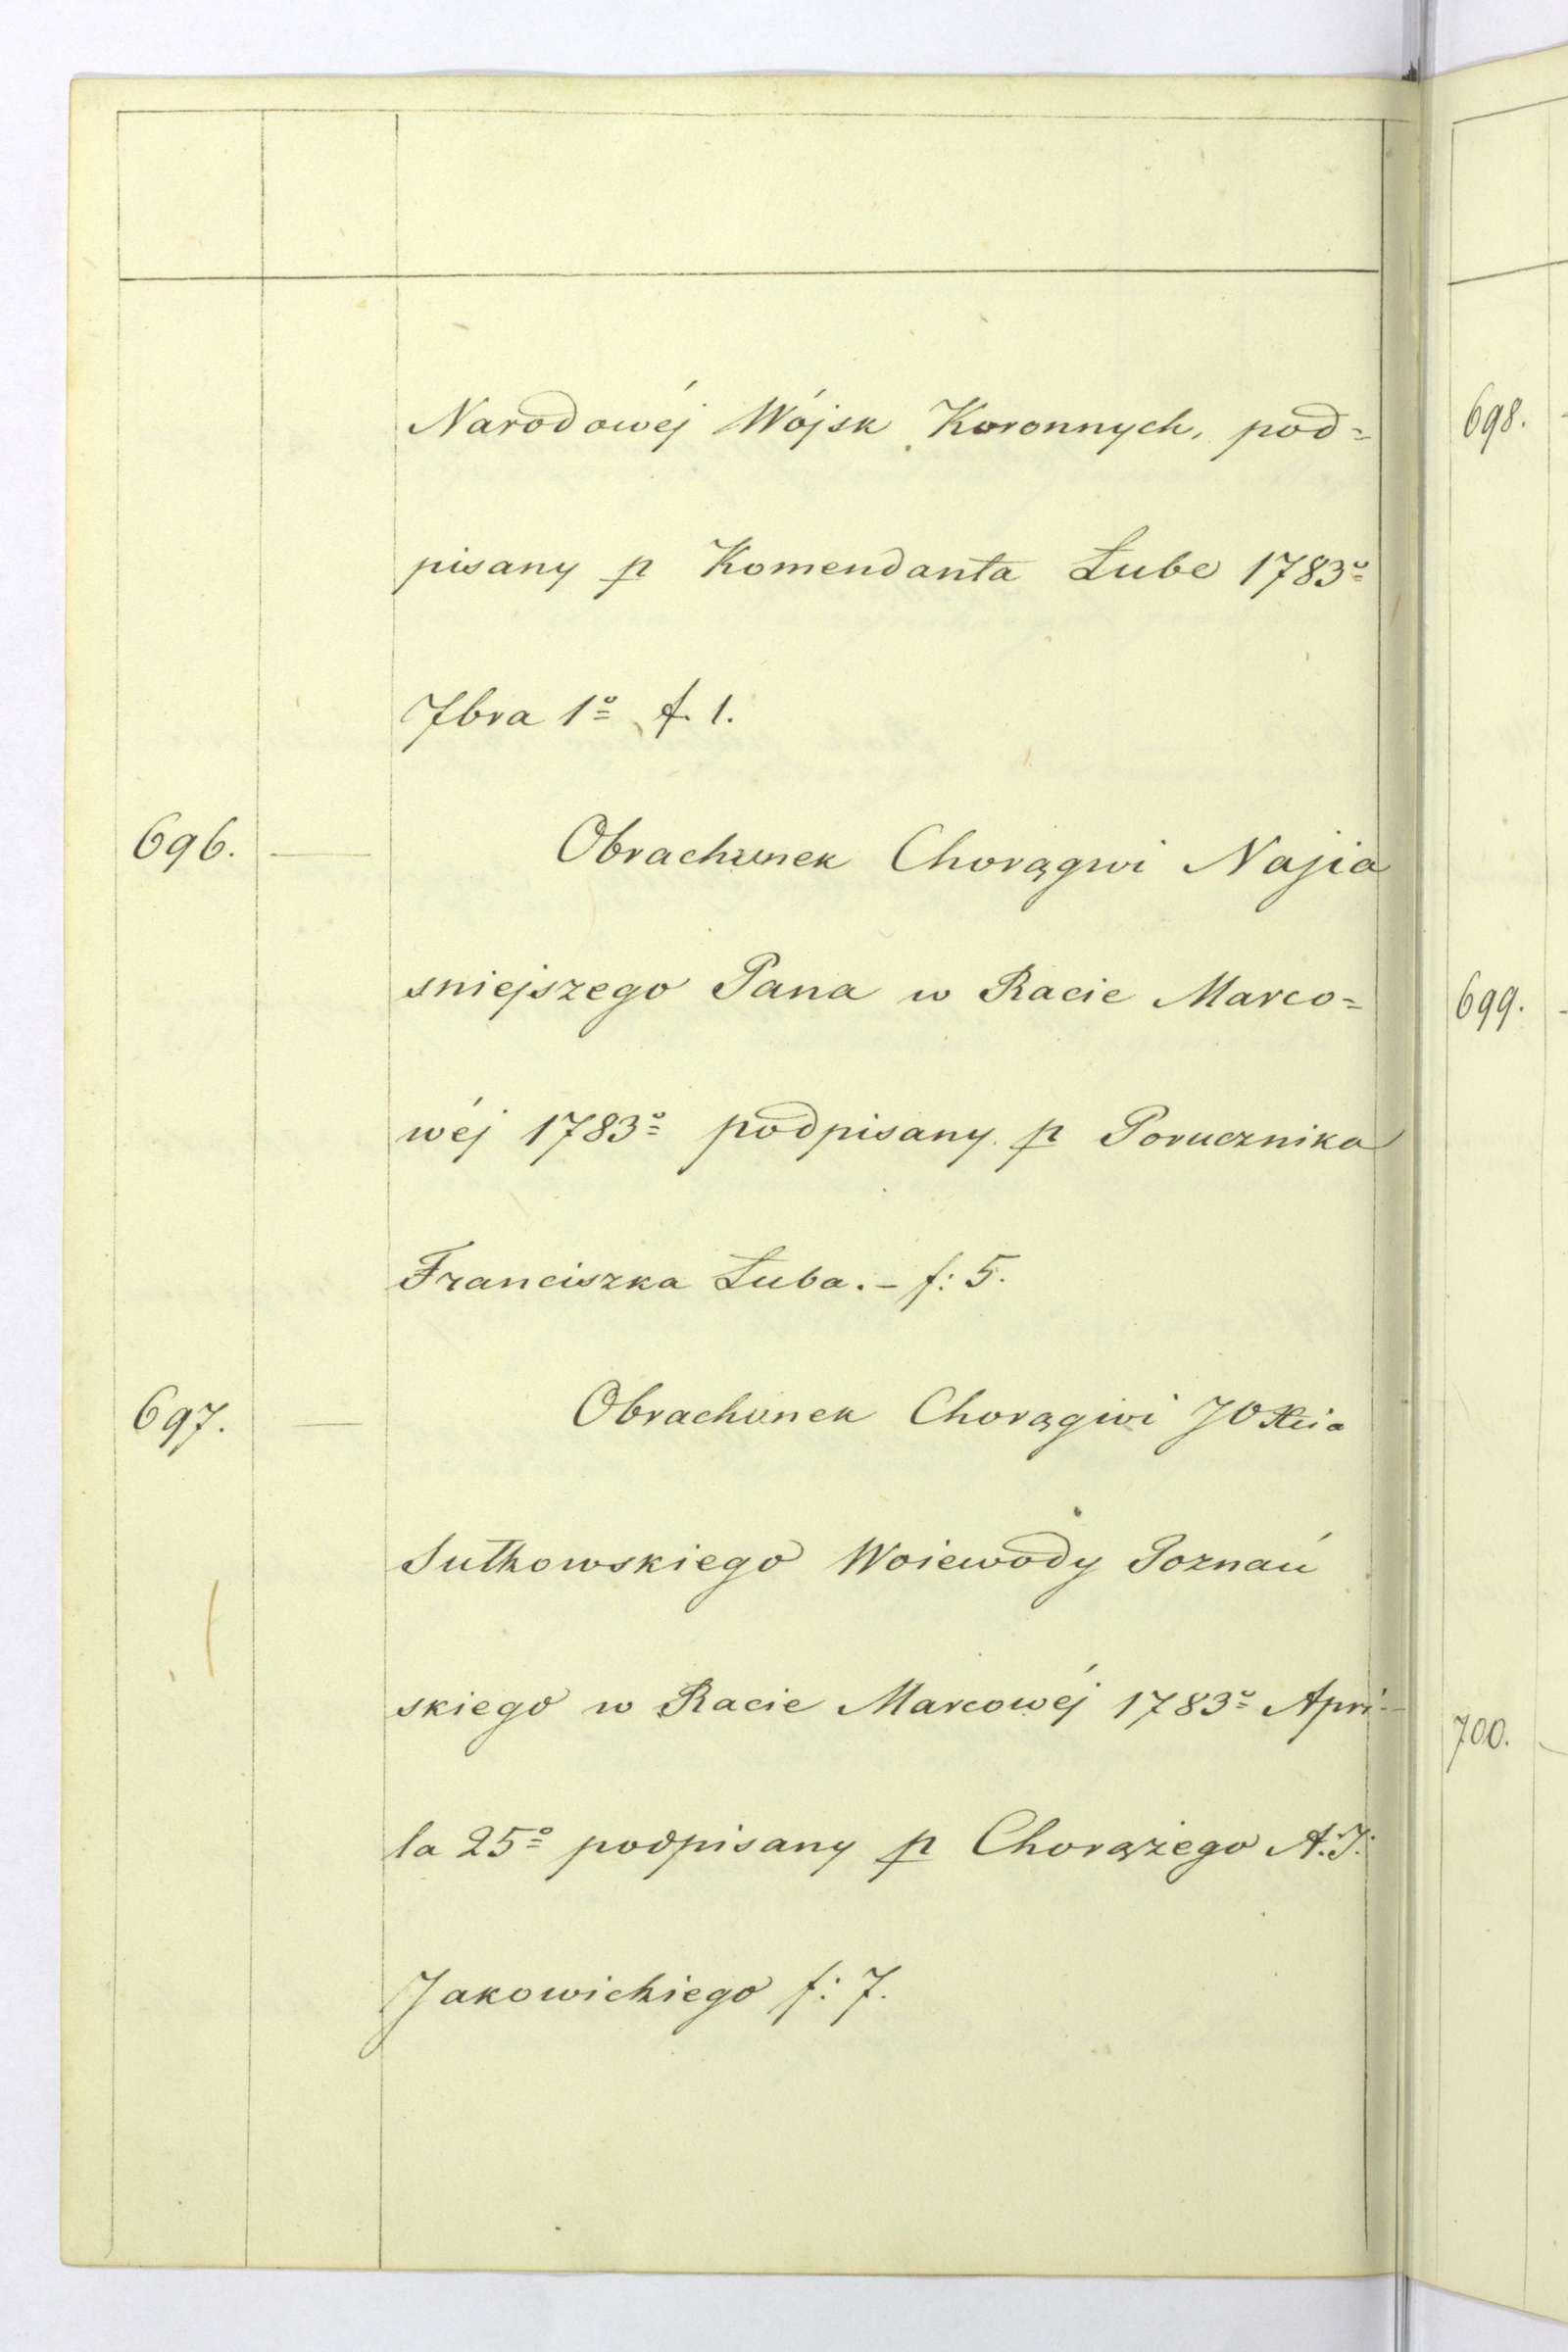 Narodowéj Wójsk Koronnych, pod=
pisany p Komendanta Łube 1783º
7bra 1º f. 1.
696. — Obrachunek Chorągwi Najia
sniejszego Pana w Racie Marco=
wéj 1783º podpisany p Porucznika
Franciszka Łuba. - f: 5.
697. — Obrachunek Chorągwi JO Xcia
Sułkowskiego Woiewody Poznań
skiego w Racie Marcowéj 1783º Apri-
la 25º podpisany p Chorążego A. J.
Jakowickiego f: 7.
698.
699.
700.